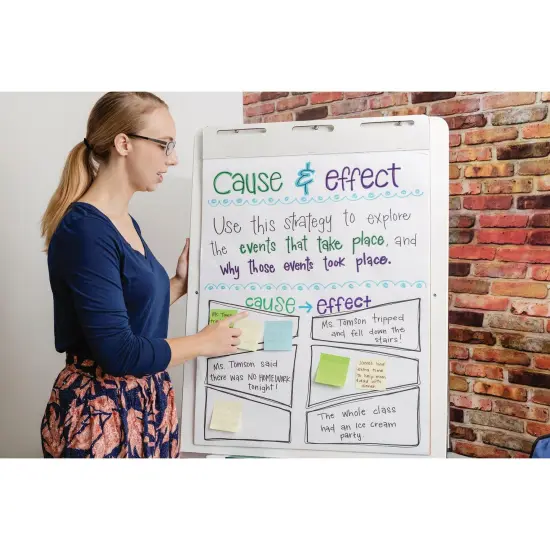 Cause & effect
Use this strategy to explore
the events that take place, and
why those events took place.
cause → effect
Ms. Tomson
Ms. Tomson tripped
and fell down the
stairs!
Ms. Tomson said
there was NO HOMEWORK
tonight!
The whole class
had an ice cream
party